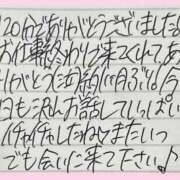 120分でありがとうございました!
お仕事終わりで来てくれてあ
りがとう(泣)約1ヶ月ぶり!今
日も沢山お話していっぱい
イチャイチャしたねまたいつ
でも会いに来て下さい♪